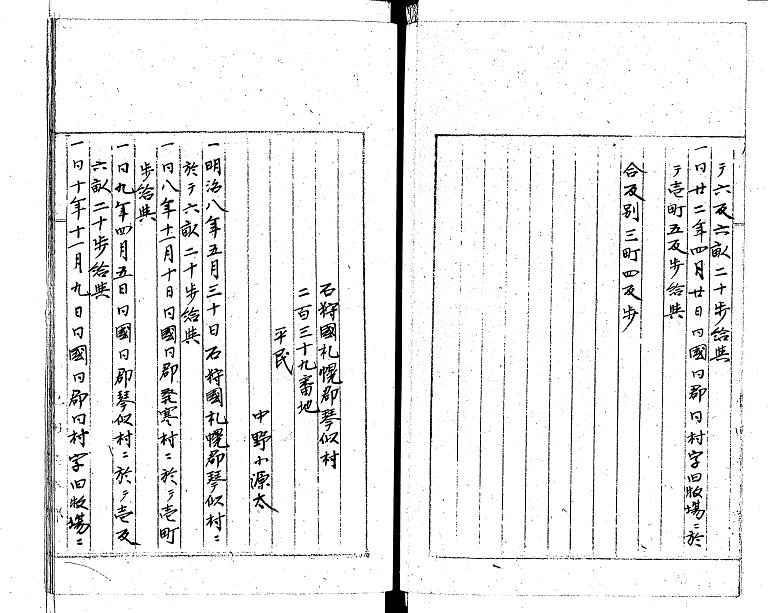 テ六反六畝二十歩給與
一同廿二年四月廿日同國同郡同村字旧牧場ニ於
テ壱町五反歩給與
合反別三町四反歩
石狩國札幌郡琴似村
二百三十九番地
平民
中野小源太
一明治八年五月三十日石狩國札幌郡琴似村ニ
於テ六畝二十歩給與
一同八年十一月十日同國同郡発寒村ニ於テ壱町
歩給與
一同九年四月五日同國同郡琴似村ニ於テ壱反
六畝二十歩給與
一同十年十一月九日同國同郡同村字旧牧場ニ